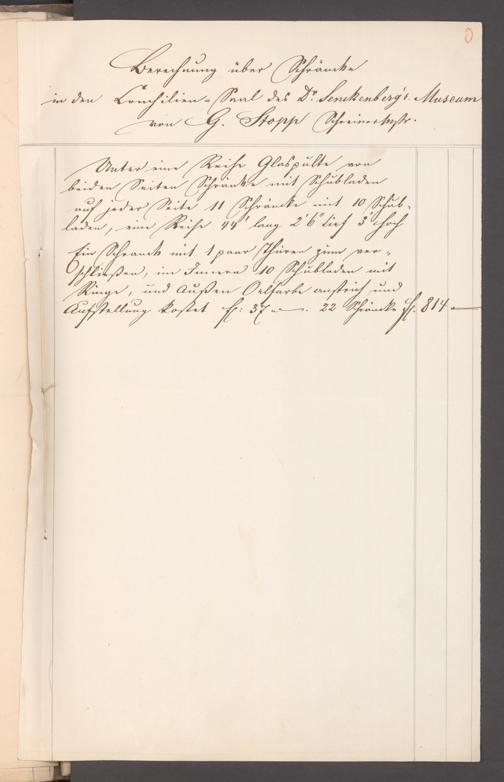 0
Berechnung über Schräncke
in den Conchilien-Saal des Dr. Senckenberg's Museum
von G. Stopp Schreinermstr.
Unter eine Reihe Glaspulte von
beiden Seiten Schränke mit Schubladen
auf jeder Seite 11 Schräncke mit 10 Schub-
laden, eine Reihe 44' lang 2'6" tief 3' hoch
Ein Schranck mit 1 paar Thüren zum ver-
schließen, im Innern 10 Schubladen mit
Ringe, und Außen Oelfarbe anstrich und
Aufstellung kostet fl: 37 — . 22 Schräncke fl. 814 —